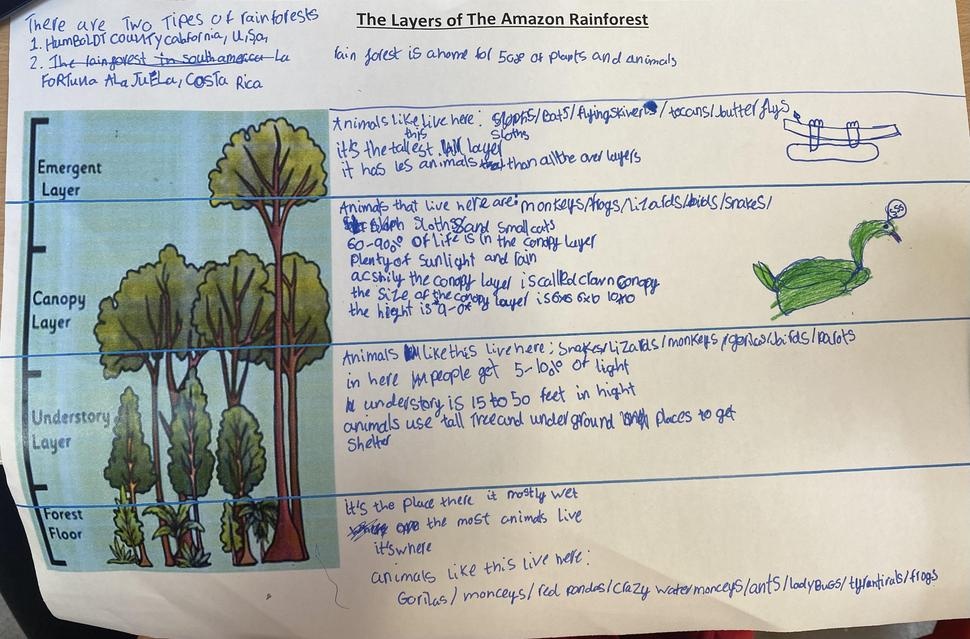 The Layers of The Amazon Rainforest
There are Two Tipes of rainforests
1. HumBoLDT county calafornia, U,S,a,
2. The rainforest in south america La
FORTuna ALaJuELa, COSTa Rica
rain forest is a home for 50% of plants and animals
Emergent
Layer
Animals like live here: sloths/Bats/flying skiverls/tocans/butterflys
this
Sloths
it's the tallest layer
it has les animals than all the over layers
Canopy
Layer
Animals that live here are: monkeys/frogs/lizards/birds/snakes/
Sloths and small cats
60-90% of life is in the canopy layer
Plenty of sunlight and rain
acshily the canopy layer is called clawn canopy
the size of the canopy layer is
the hieght is
Understory
Layer
Animals like this live here: Snakes/Lizards/monkeys/gorilas/birds/parots
in here people get 5-10% of light
understory is 15 to 50 feet in hight
animals use tall Tree and underground places to get
Shelter
Forest
Floor
it's the place there it mostly wet
the most animals live
it's where
animals like this live here:
Gorilas/monceys/red pandas/crazy water monceys/ants/ladyBugs/tyrantirals/frogs